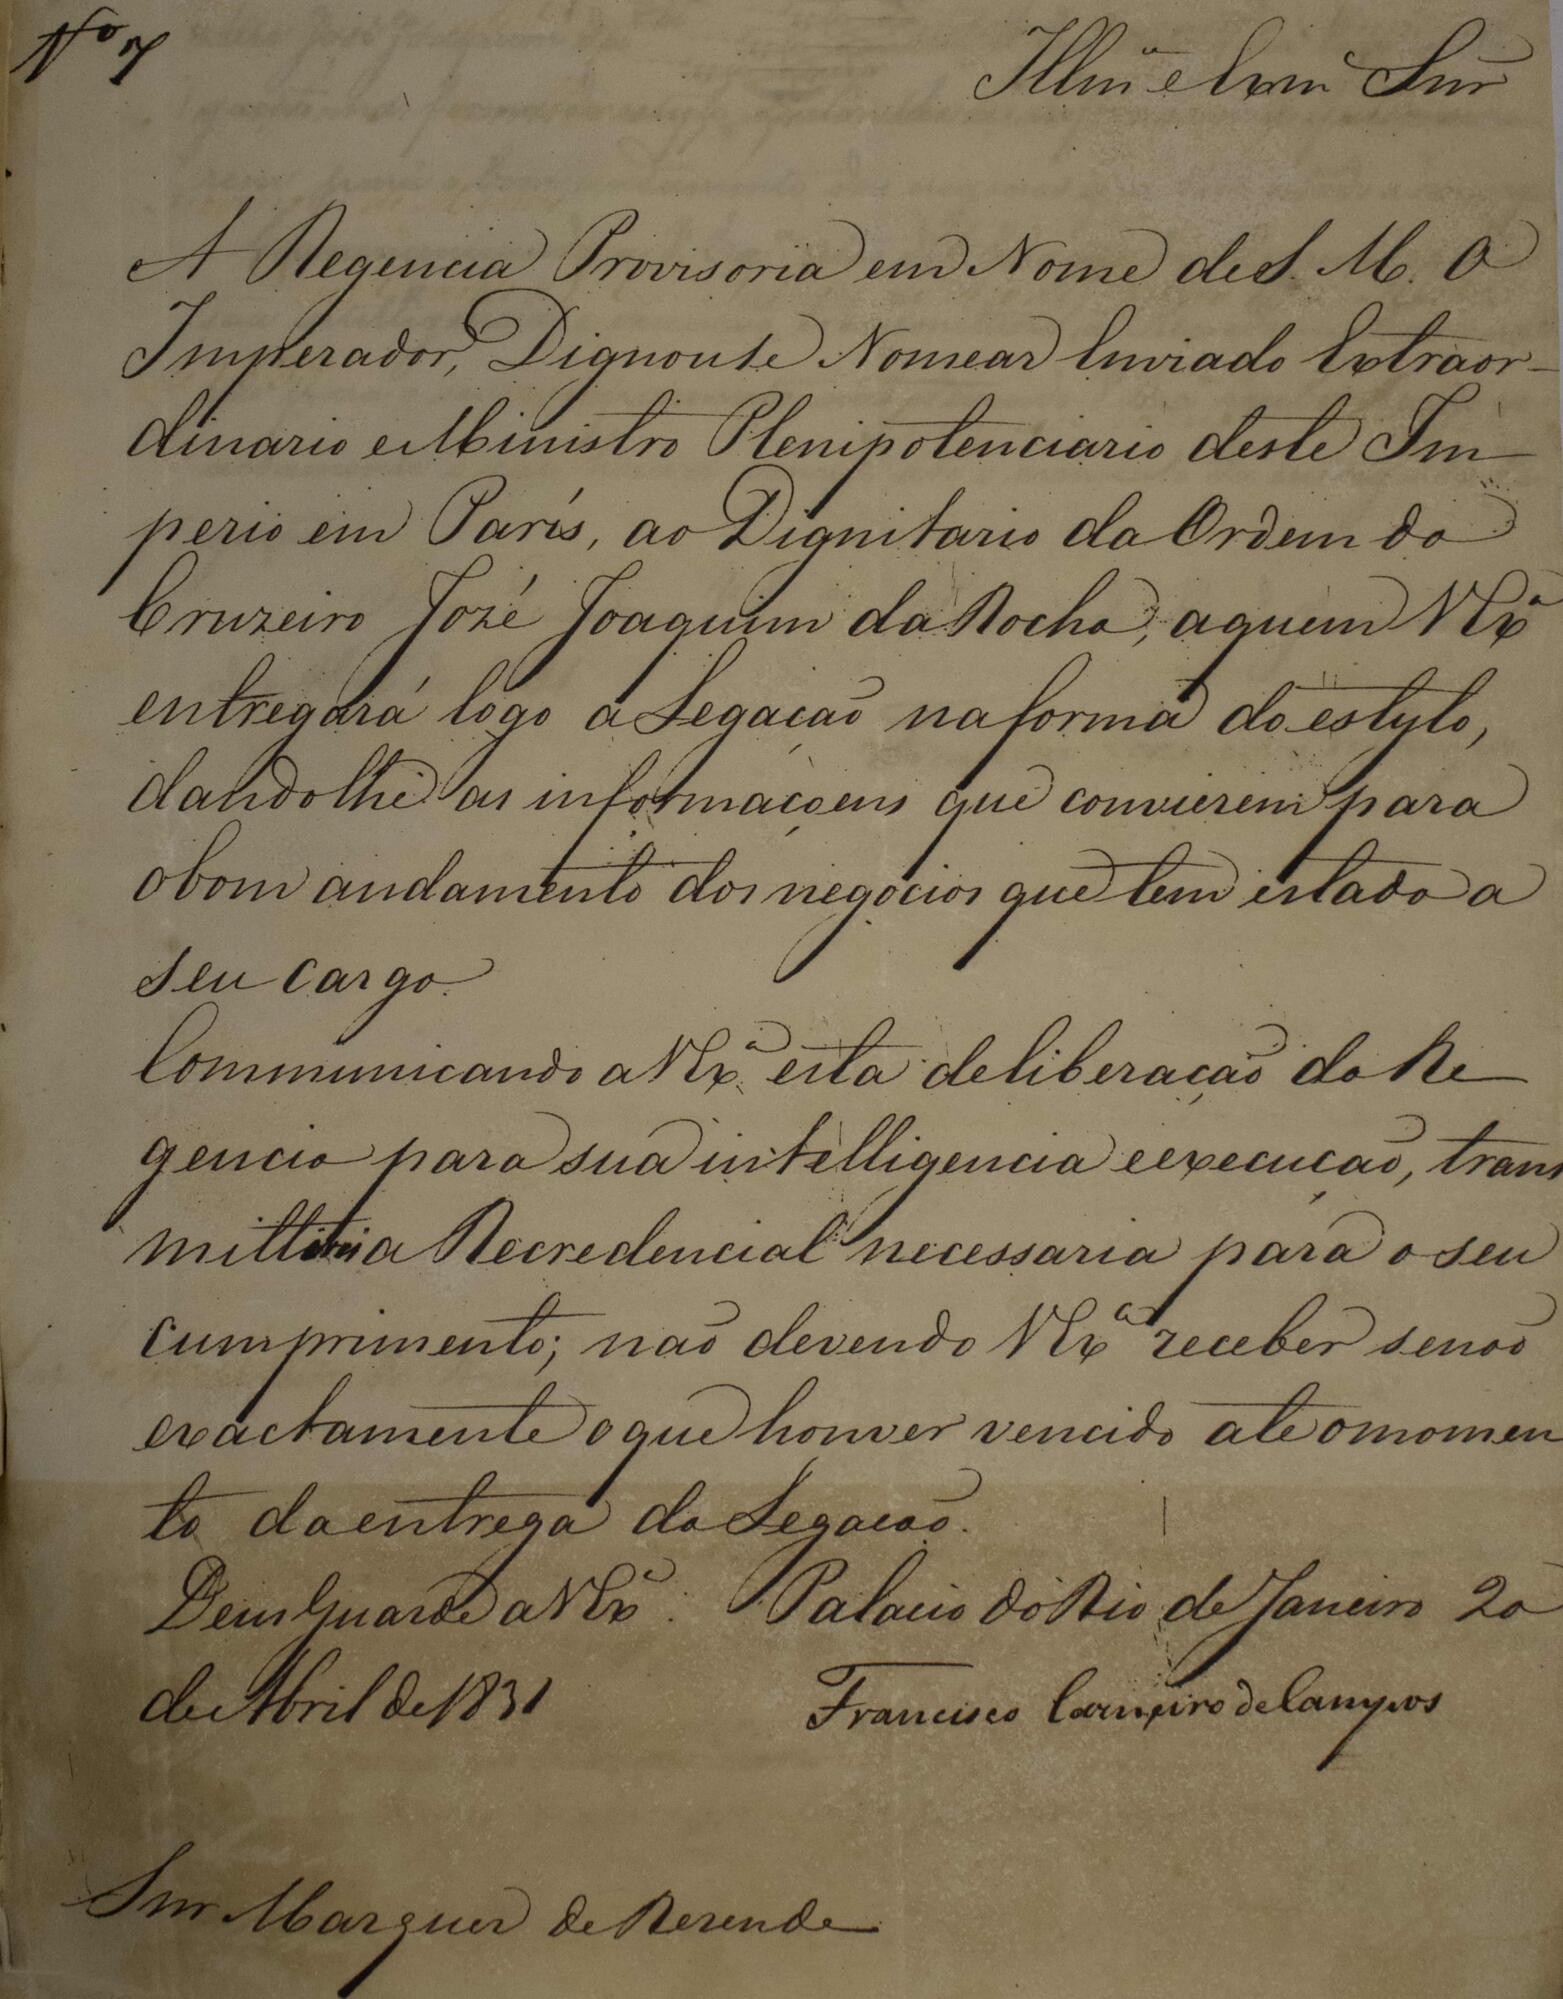 Nº 7
Illmº e Exmº Snr
A Regencia Provisoria em Nome de S. M. O
Imperador, Dignouse Nomear Enviado Extraor-
dinario e Ministro Plenipotenciario deste Im
perio em París, ao Dignitario da Ordem do
Cruzeiro Jozé Joaquim da Rocha, aquem VExª
entregará logo a Legação na forma do estylo,
dandolhe as informaçoens que convierem para
o bom andamento dos negocios que tem estado a
seu cargo.
Communicando a VExª esta deliberação da Re
gencia para sua intelligencia e execução, trans
mitti a Recredencial necessaria para o seu
cumprimento; não devendo VExª receber senão
exactamente o que houver vencido ate o momen
to da entrega da Legação.
Deus Guarde a VExª. Palacio do Rio de Janeiro 20
de Abril de 1831
Francisco Carneiro de Campos
Snr Marquez de Rezende